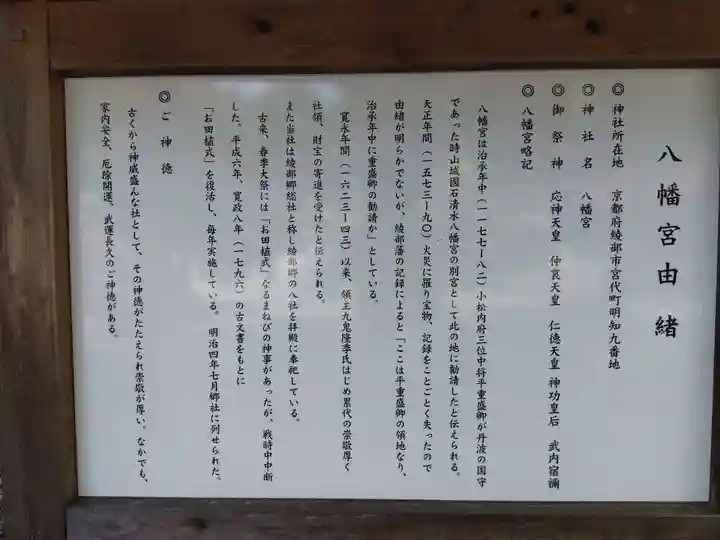 八幡宮由緒
◎神社所在地 京都府綾部市宮代町明知九番地
◎神社名 八幡宮
◎御祭神 応神天皇 仲哀天皇 仁徳天皇 神功皇后 武内宿禰
◎八幡宮略記
八幡宮は治承年中(一一七七ー八二)小松内府三位中将平重盛卿が丹波の国守
であった時山城國石清水八幡宮の別宮として此の地に勧請したと伝えられる。
天正年間(一五七三ー九〇)火災に罹り宝物、記録をことごとく失ったので
由緒が明らかでないが、綾部藩の記録によると「ここは平重盛卿の領地なり、
治承年中に重盛卿の勧請か」としている。
寛永年間(一六二三ー四三)以来、領主九鬼隆季氏はじめ累代の崇敬厚く
社領、財宝の寄進を受けたと伝えられる。
また当社は綾部郷総社と称し綾部郷の八社を拝殿に奉祀している。
古来、春季大祭には「お田植式」なるまねびの神事があったが、戦時中中断
した。平成六年、寛政八年(一七九六)の古文書をもとに
「お田植式」を復活し、毎年実施している。明治四年七月郷社に列せられた。
◎ご神徳
古くから神威盛んな社として、その神徳がたたえられ崇敬が厚い。なかでも、
家内安全、厄除開運、武運長久のご神徳がある。